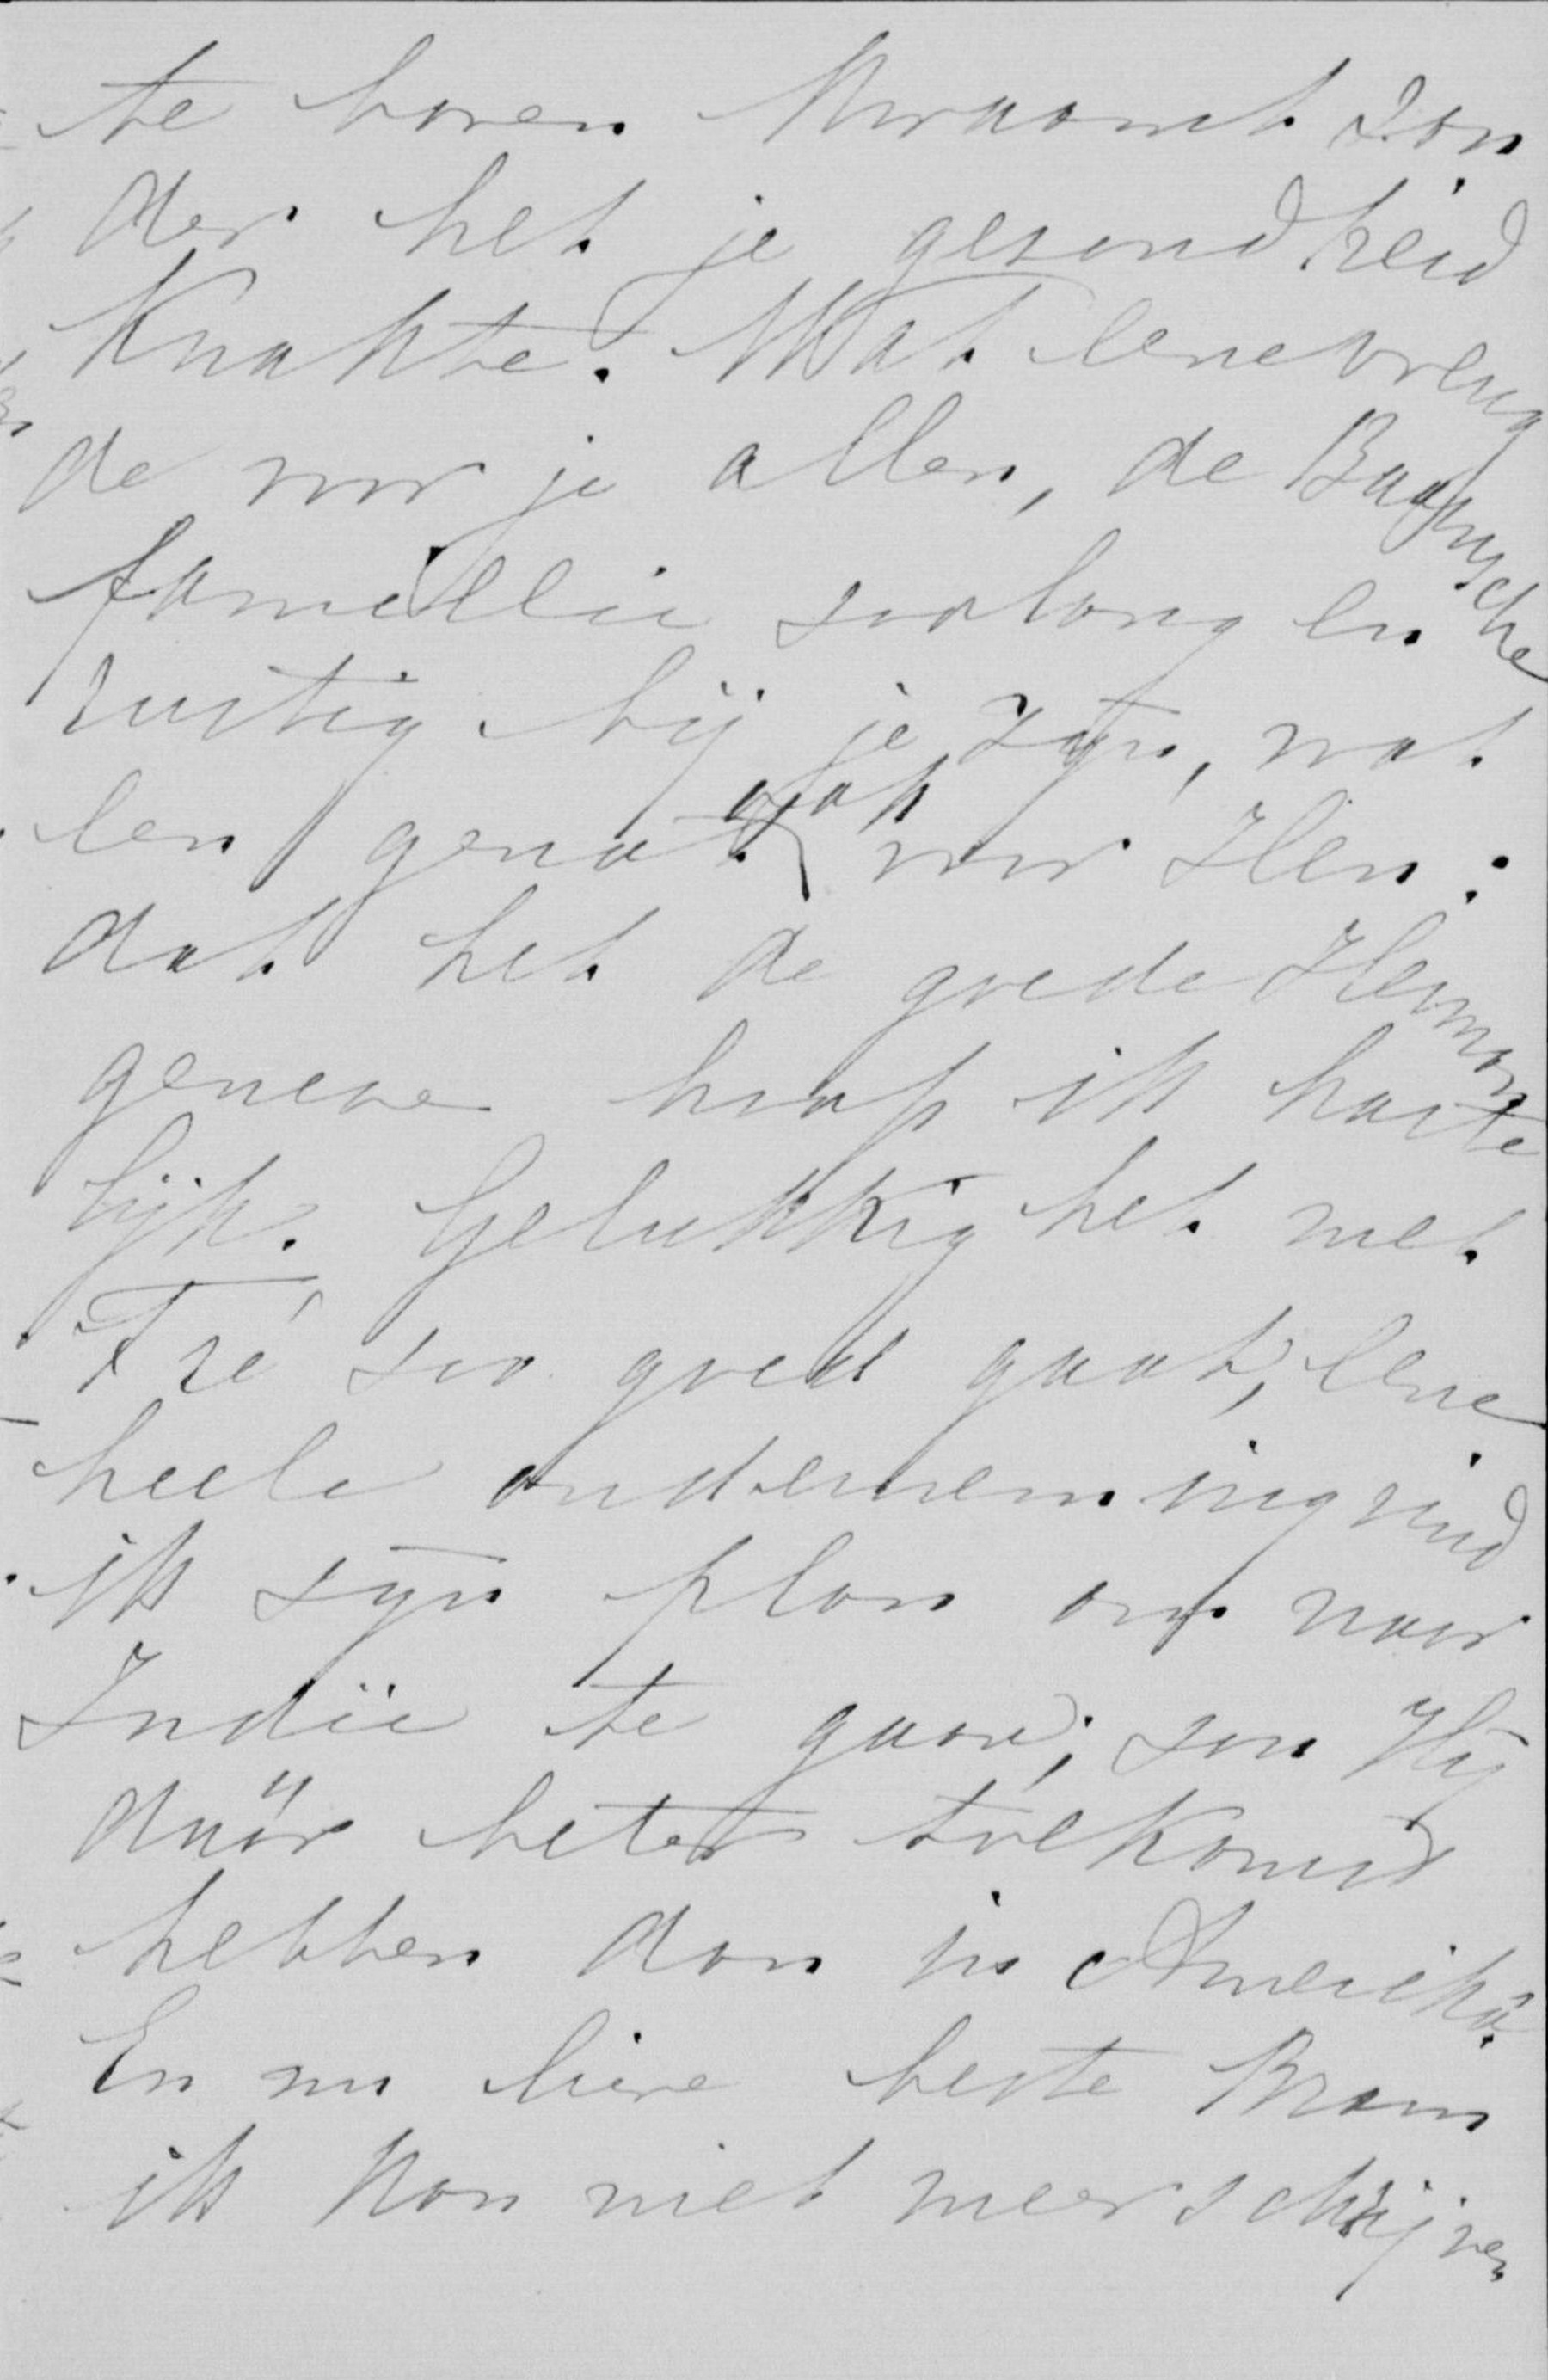 te boven kwaamt zon
der het je gezondheid
knakte. Wat eene vreug
de voor je allen, de Baarnsche
famillie zoolang en
rustig bij je zijn, wat
een genot ook voor Hen:
dat het de goede Herman
geneze hoop ik harte
lijk. Gelukkig het met
Fré zoo goed gaat, eene
heele onderneming vind
ik zijn plan om naar
Indië te gaan; zou Hij
däàr beter toekomst
hebben dan in Amerika.
En nu lieve beste Bram
ik kan niet meer schrijven